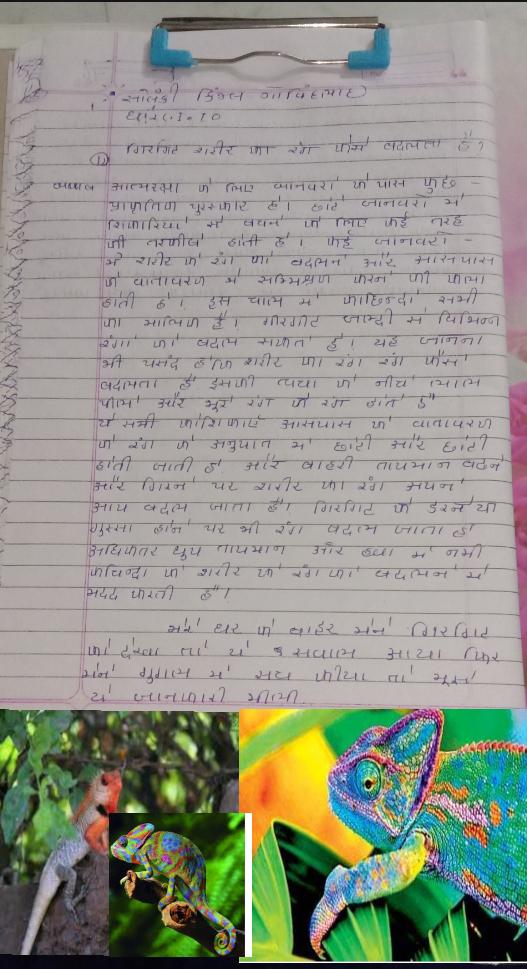 सोलंकी डिम्पल गोविंदभाई
गिरगिट शरीर का रंग कैसे बदलता है?
जवाब आत्मरक्षा के लिए जानवरों के पास कुछ -
प्राकृतिक पुरस्कार है। छोटे जानवरों में
शिकारियों से बचने के लिए कई तरह
की तरकीब होती है। कई जानवरों -
में शरीर के रंग को बदलने और आसपास
के वातावरण में सम्मिश्रण करने की कला
होती है। इस चाल में काछिन्दा सभी
का मालिक है। गीरगीट जल्दी से विभिन्न
रंगों को बदल सकते है। यह जानना
भी पसंद शरीर का रंग रंग कैसे
बदलता है इसकी त्वचा के नीचे लाल
काले और भूरे रंग के रंग होते है
ये सभी कोशिकाएं आसपास के वातावरण
के रंग के अनुपात में छोटी और छोटी
होती जाती है और बाहरी तापमान बढ़ने
और गिरने पर शरीर का रंग अपने
आप बदल जाता है। गिरगिट के डरने या
गुस्सा होने पर भी रंग बदल जाता है
अधिकतर धूप तापमान और हवा में नमी
काचिन्दा के शरीर के रंग को बदलने में
मदद करती है।
मेरे घर के बाहर मेंने गिरगिट
को देखा तो ये सवाल आया फिर
मेंने गुगल में सर्च कीया तो मुझे
ये जानकारी मीली